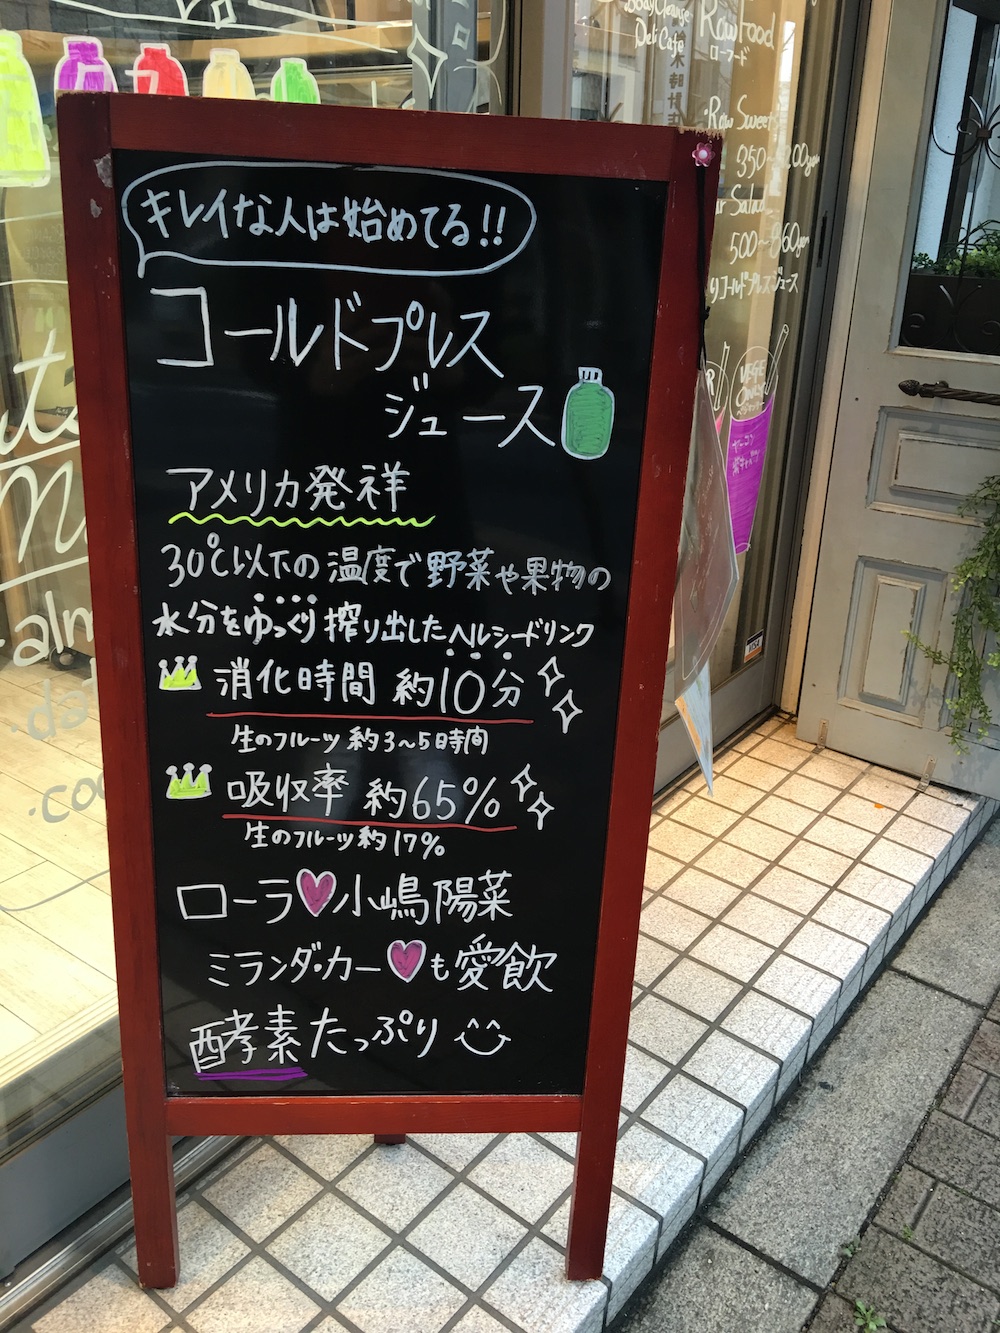 キレイな人は始めてる!!
コールドプレス
ジュース
アメリカ発祥
30℃以下の温度で野菜や果物の
水分をゆっくり搾り出したヘルシードリンク
消化時間 約10分
生のフルーツ 約3~5時間
吸収率 約65%
生のフルーツ約17%
ローラ♥小嶋陽菜
ミランダ・カー♥も愛飲
酵素たっぷり
Body Cleanse
Deli Cafe
Raw Food
ローフード
Raw Sweets
350~
Salad
500~860yen
コールドプレスジュース
VEGE